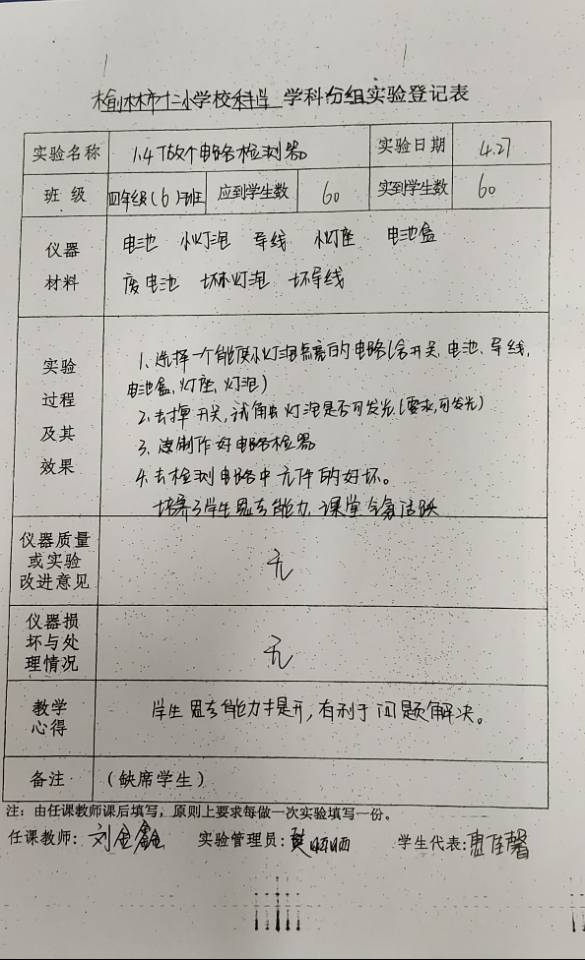 榆林市十二小学校科学 学科分组实验登记表
实验名称 1.4做个电路检测器 实验日期 4.27
班级 四年级(6)班 应到学生数 60 实到学生数 60
仪器材料 电池 小灯泡 导线 小灯座 电池盒
废电池 坏小灯泡 坏导线
实验过程及其效果
1、选择一个能使小灯泡点亮的电路(含开关、电池、导线,
电池盒、灯座、灯泡)
2、去掉开关,试触 灯泡是否可发光.(要求,可发光)
3、 制作好电路检器
4、去检测电路中元件的好坏。
培养了学生思考能力,课堂气氛活跃
仪器质量或实验改进意见 无
仪器损坏与处理情况 无
教学心得 学生思考能力提升,有利于问题解决。
备注 (缺席学生)
注:由任课教师课后填写,原则上要求每做一次实验填写一份。
任课教师:刘金鑫 实验管理员: 学生代表: